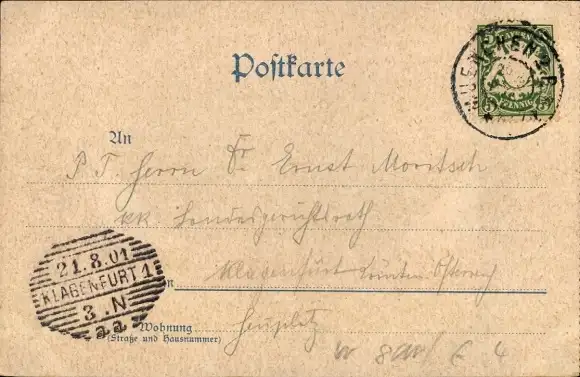 Postkarte
MUENCHEN 2 B.P.
5
PFENNIG
5
An
P. T. Herrn Dr. Ernst Moritsch
kk Landesgerichtsrath
21.8.01
KLAGENFURT 1
3.N
in Klagenfurt Kärnten Österreich
Wohnung Heuplatz
(Straße und Hausnummer)